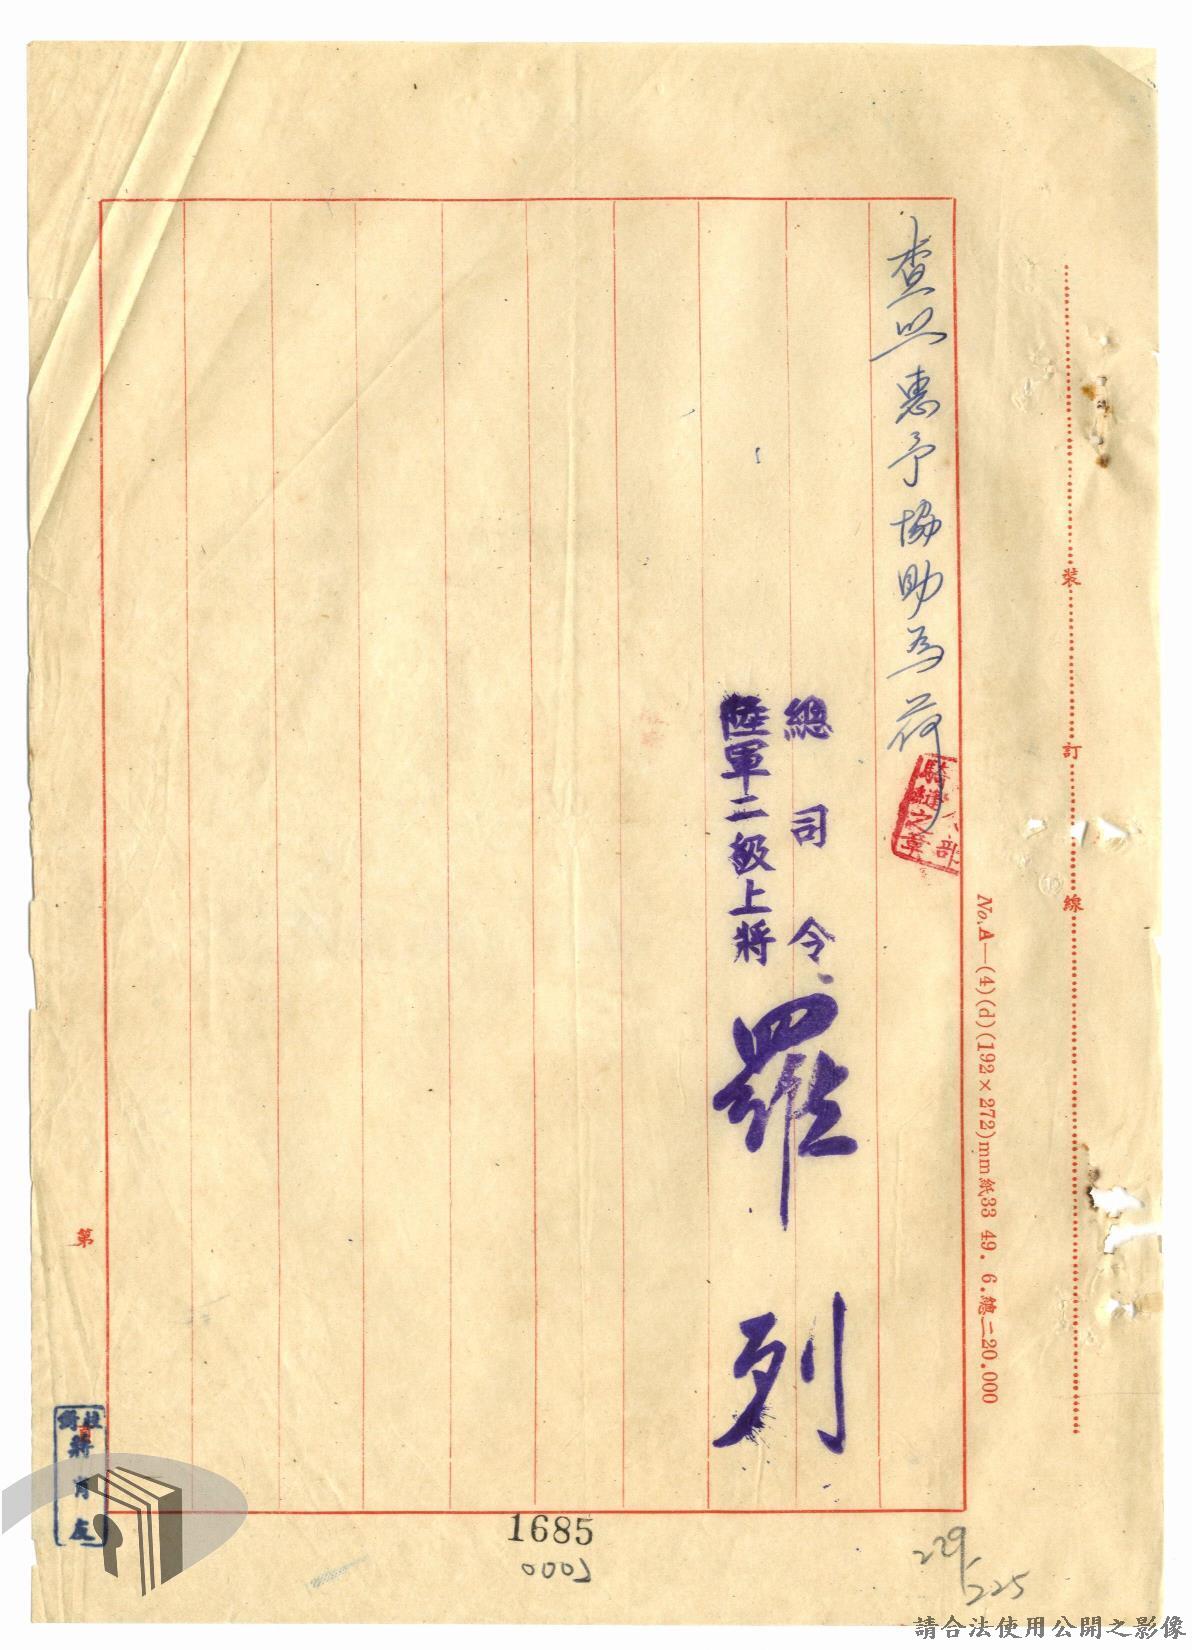 查照惠予協助為荷
騎縫之章
部
總司令
陸軍二級上將
羅列
裝
訂
線
No. A—(4)(d)(192×272)mm紙33 49. 6.總二20.000
第
頁
蔣
1685
0005
229
225
請合法使用公開之影像